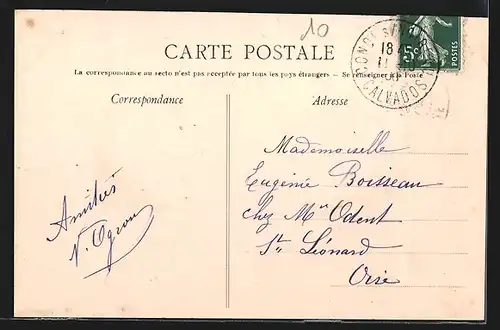 10
CARTE POSTALE
La correspondance au recto n'est pas acceptée par tous les pays étrangers. — Se renseigner à la Poste
5c
POSTES
18
CALVADOS
Correspondance
Adresse
Mademoiselle
Eugénie Boisseau
chez Mr Odent
St Léonard
Oise
Amitiés